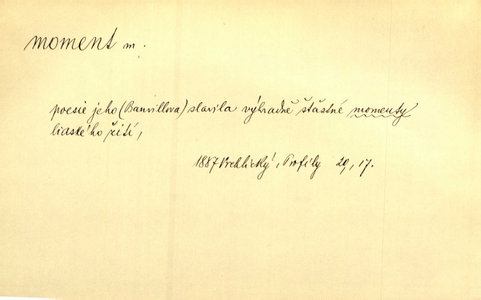 moment m.
poesie jeho (Banvillova) slavila výhradně šťastné momenty
lidského žití,
1887 Vrchlický, Profily 20, 17.